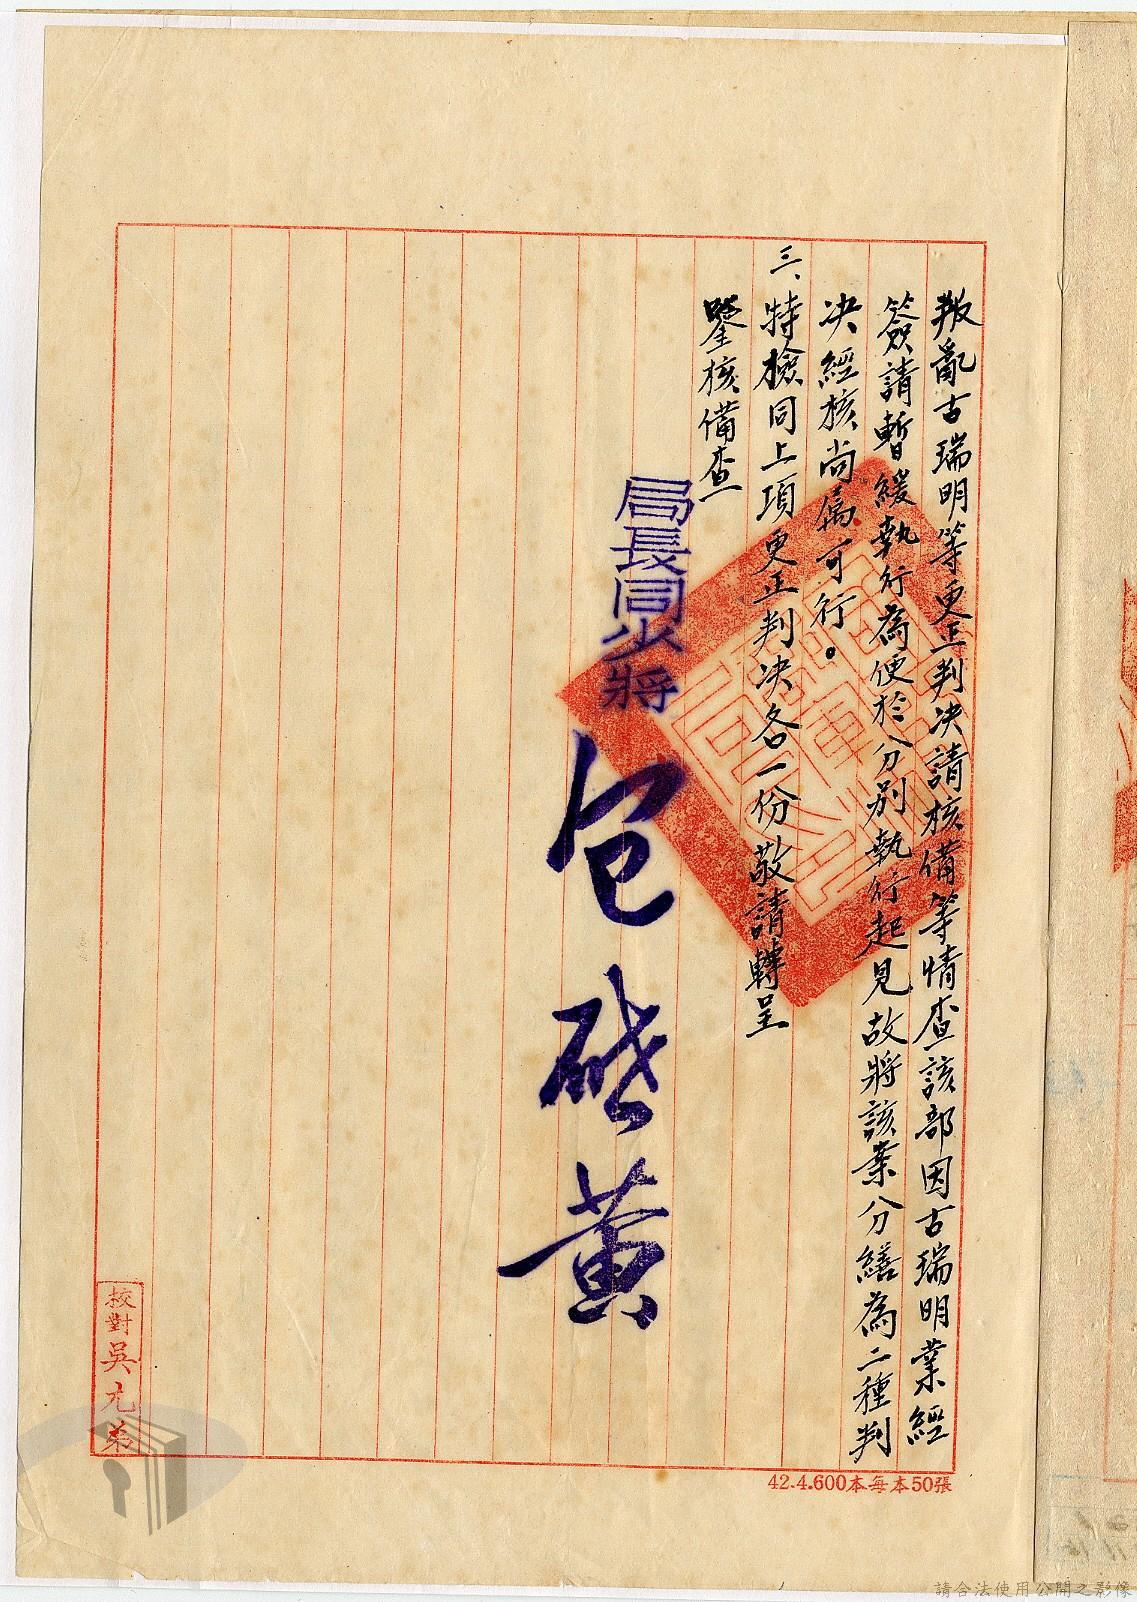 叛亂古瑞明等更正判决請核備等情查該部因古瑞明業經
簽請暫緩執行為便於分別執行起見故將該案分繕為二種判
决經核尚屬可行。
三、特檢同上項更正判决各一份敬請轉呈
鑒核備查
局長同少將
包啓黃
校對吳元弟
42.4.600本每本50張
請合法使用公開之影像